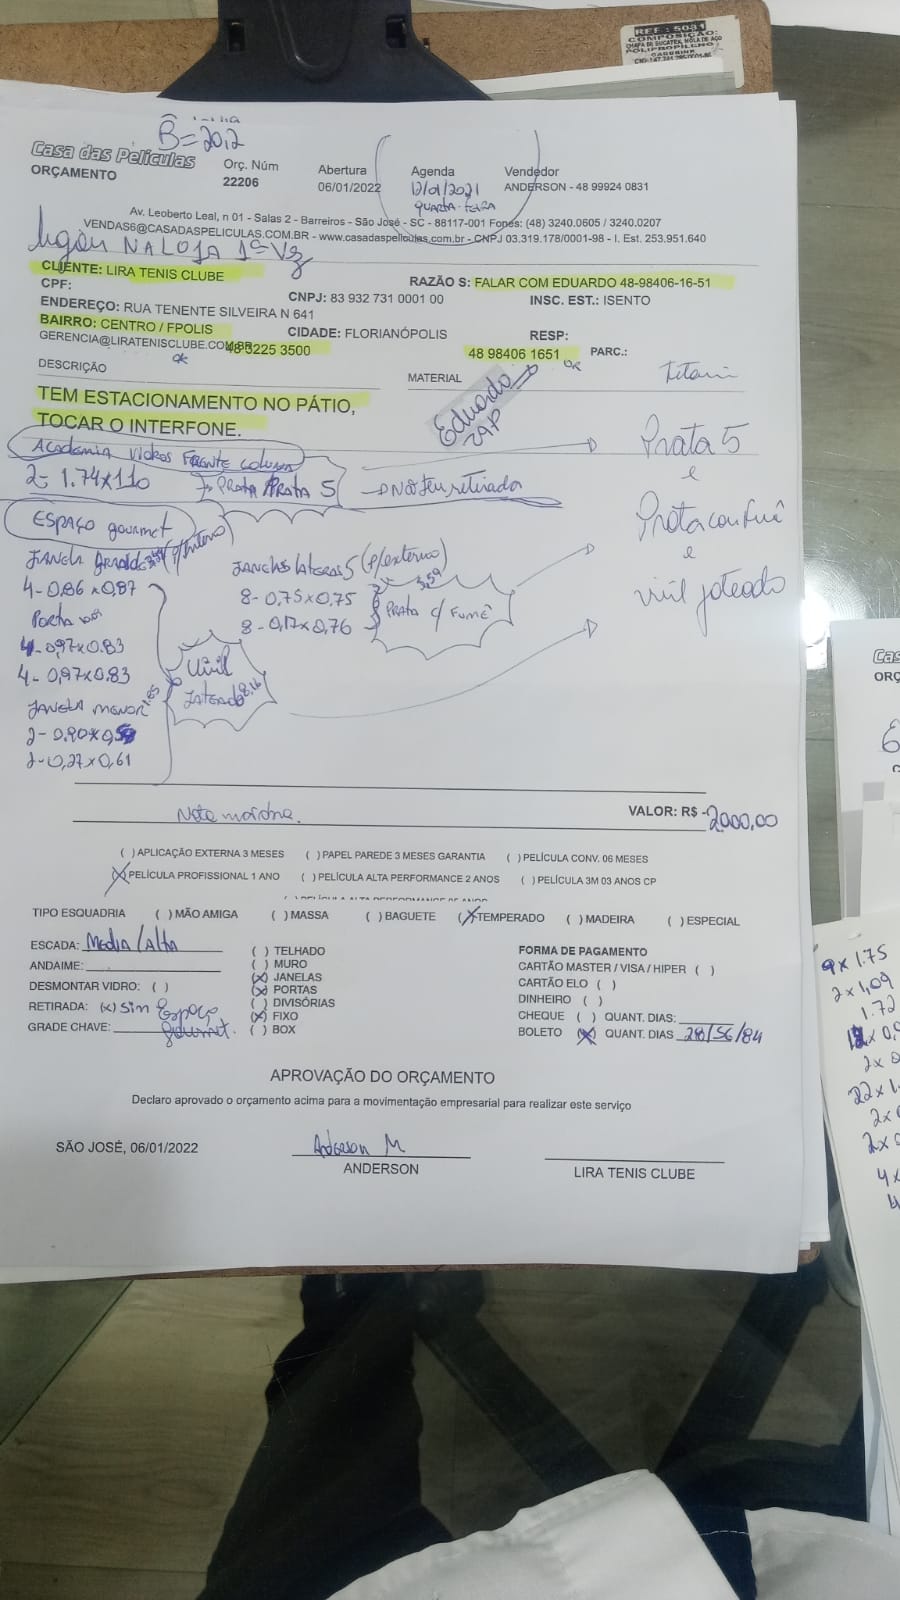 REF.: 5081
COMPOSIÇÃO:
B=20,2
Casa das Películas
ORÇAMENTO
Orç. Núm
22206
Abertura
06/01/2022
Agenda
12/01/2021
QUARTA-FEIRA
Vendedor
ANDERSON - 48 99924 0831
Av. Leoberto Leal, n 01 - Salas 2 - Barreiros - São José - SC - 88117-001 Fones: (48) 3240.0605 / 3240.0207
VENDAS6@CASADASPELICULAS.COM.BR - www.casadaspeliculas.com.br - CNPJ 03.319.178/0001-98 - I. Est. 253.951.640
ligou NA LOJA 1ª Vez
CLIENTE: LIRA TENIS CLUBE
RAZÃO S: FALAR COM EDUARDO 48-98406-16-51
CPF:
CNPJ: 83 932 731 0001 00
INSC. EST.: ISENTO
ENDEREÇO: RUA TENENTE SILVEIRA N 641
BAIRRO: CENTRO / FPOLIS
CIDADE: FLORIANÓPOLIS
RESP:
GERENCIA@LIRATENISCLUBE.COM.BR
48 3225 3500
48 98406 1651
PARC.:
ok
OK
DESCRIÇÃO
MATERIAL
Eduardo
ZAP
TEM ESTACIONAMENTO NO PÁTIO,
TOCAR O INTERFONE.
Academia Vidros Frente coluna
2- 1.74x110
PRATA 5
Não tem retirada
Prata 5
e
Prata com fumê
e
vinil jateado
ESPAÇO gourmet
JANELA Grande (P/interno)
4-0,86 x0,87
Porta
4-0,97x0.83
4-0,97x0.83
JANELA MENOR
2-0.90x0,5
2-0,27x0,61
Vinil
JATEADO 8,16
JANELAS LATERAIS (P/externo)
8-0,75x0,75
8-0,17x0,76
3,59
PRATA c/ FUMÊ
VALOR: R$ -2000,00
( ) APLICAÇÃO EXTERNA 3 MESES ( ) PAPEL PAREDE 3 MESES GARANTIA ( ) PELÍCULA CONV. 06 MESES
(X) PELÍCULA PROFISSIONAL 1 ANO ( ) PELÍCULA ALTA PERFORMANCE 2 ANOS ( ) PELÍCULA 3M 03 ANOS CP
TIPO ESQUADRIA ( ) MÃO AMIGA ( ) MASSA ( ) BAGUETE (X) TEMPERADO ( ) MADEIRA ( ) ESPECIAL
ESCADA: Media/Alta
ANDAIME:
DESMONTAR VIDRO: ( )
RETIRADA: (x) Sim Espaço
gourmet.
GRADE CHAVE:
( ) TELHADO
( ) MURO
(X) JANELAS
(X) PORTAS
( ) DIVISÓRIAS
(X) FIXO
( ) BOX
FORMA DE PAGAMENTO
CARTÃO MASTER / VISA / HIPER ( )
CARTÃO ELO ( )
DINHEIRO ( )
CHEQUE ( ) QUANT. DIAS:
BOLETO (X) QUANT. DIAS 28/56/84
APROVAÇÃO DO ORÇAMENTO
Declaro aprovado o orçamento acima para a movimentação empresarial para realizar este serviço
SÃO JOSÉ, 06/01/2022
Anderson M
ANDERSON
LIRA TENIS CLUBE
Cas
ORÇ
9x 1.75
2x 1,09
1.72